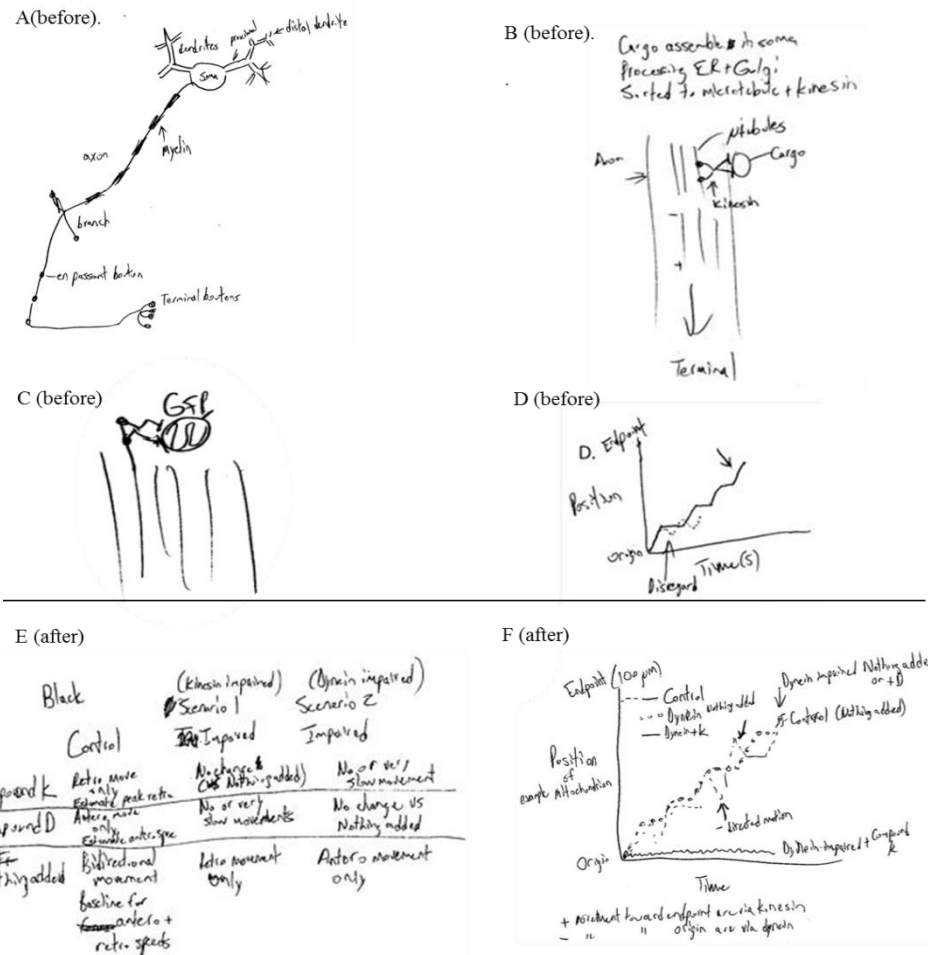 A(before).
dendrites
proximal
distal dendrite
Soma
Myelin
axon
branch
en passant bouton
Terminal boutons
B (before).
Cargo assemble in soma
Processing ER + Golgi
Sorted to microtubule + kinesin
μtubules
Axon
Cargo
Kinesin
-
+
Terminal
C (before)
GFP
D (before)
D. Endpoint
Position
Origin
Time(s)
Disregard
E (after)
Black
(Kinesin impaired)
(Dynein impaired)
Scenario 1
Scenario 2
Control
Impaired
Impaired
pound K
Retro move
only
Estimate peak retro
No change
(vs Nothing added)
No or very
slow movement
pound D
Antero move
only
Estimate antero spe
No or very
slow movements
No change vs
Nothing added
thing added
Bidirectional
movement
baseline for
antero +
retro speeds
Retro movement
only
Antero movement
only
F (after)
Endpoint (100 μm)
Control
Dynein Nothing added
Dynein + k
Dynein impaired Nothing adde
or + D
Control (Nothing added)
Position
of
example Mitochondrion
- Directed motion
Origin
Dynein-impaired + Compound
k
Time
+ movement toward endpoint are via kinesin
- " " origin are via dynein